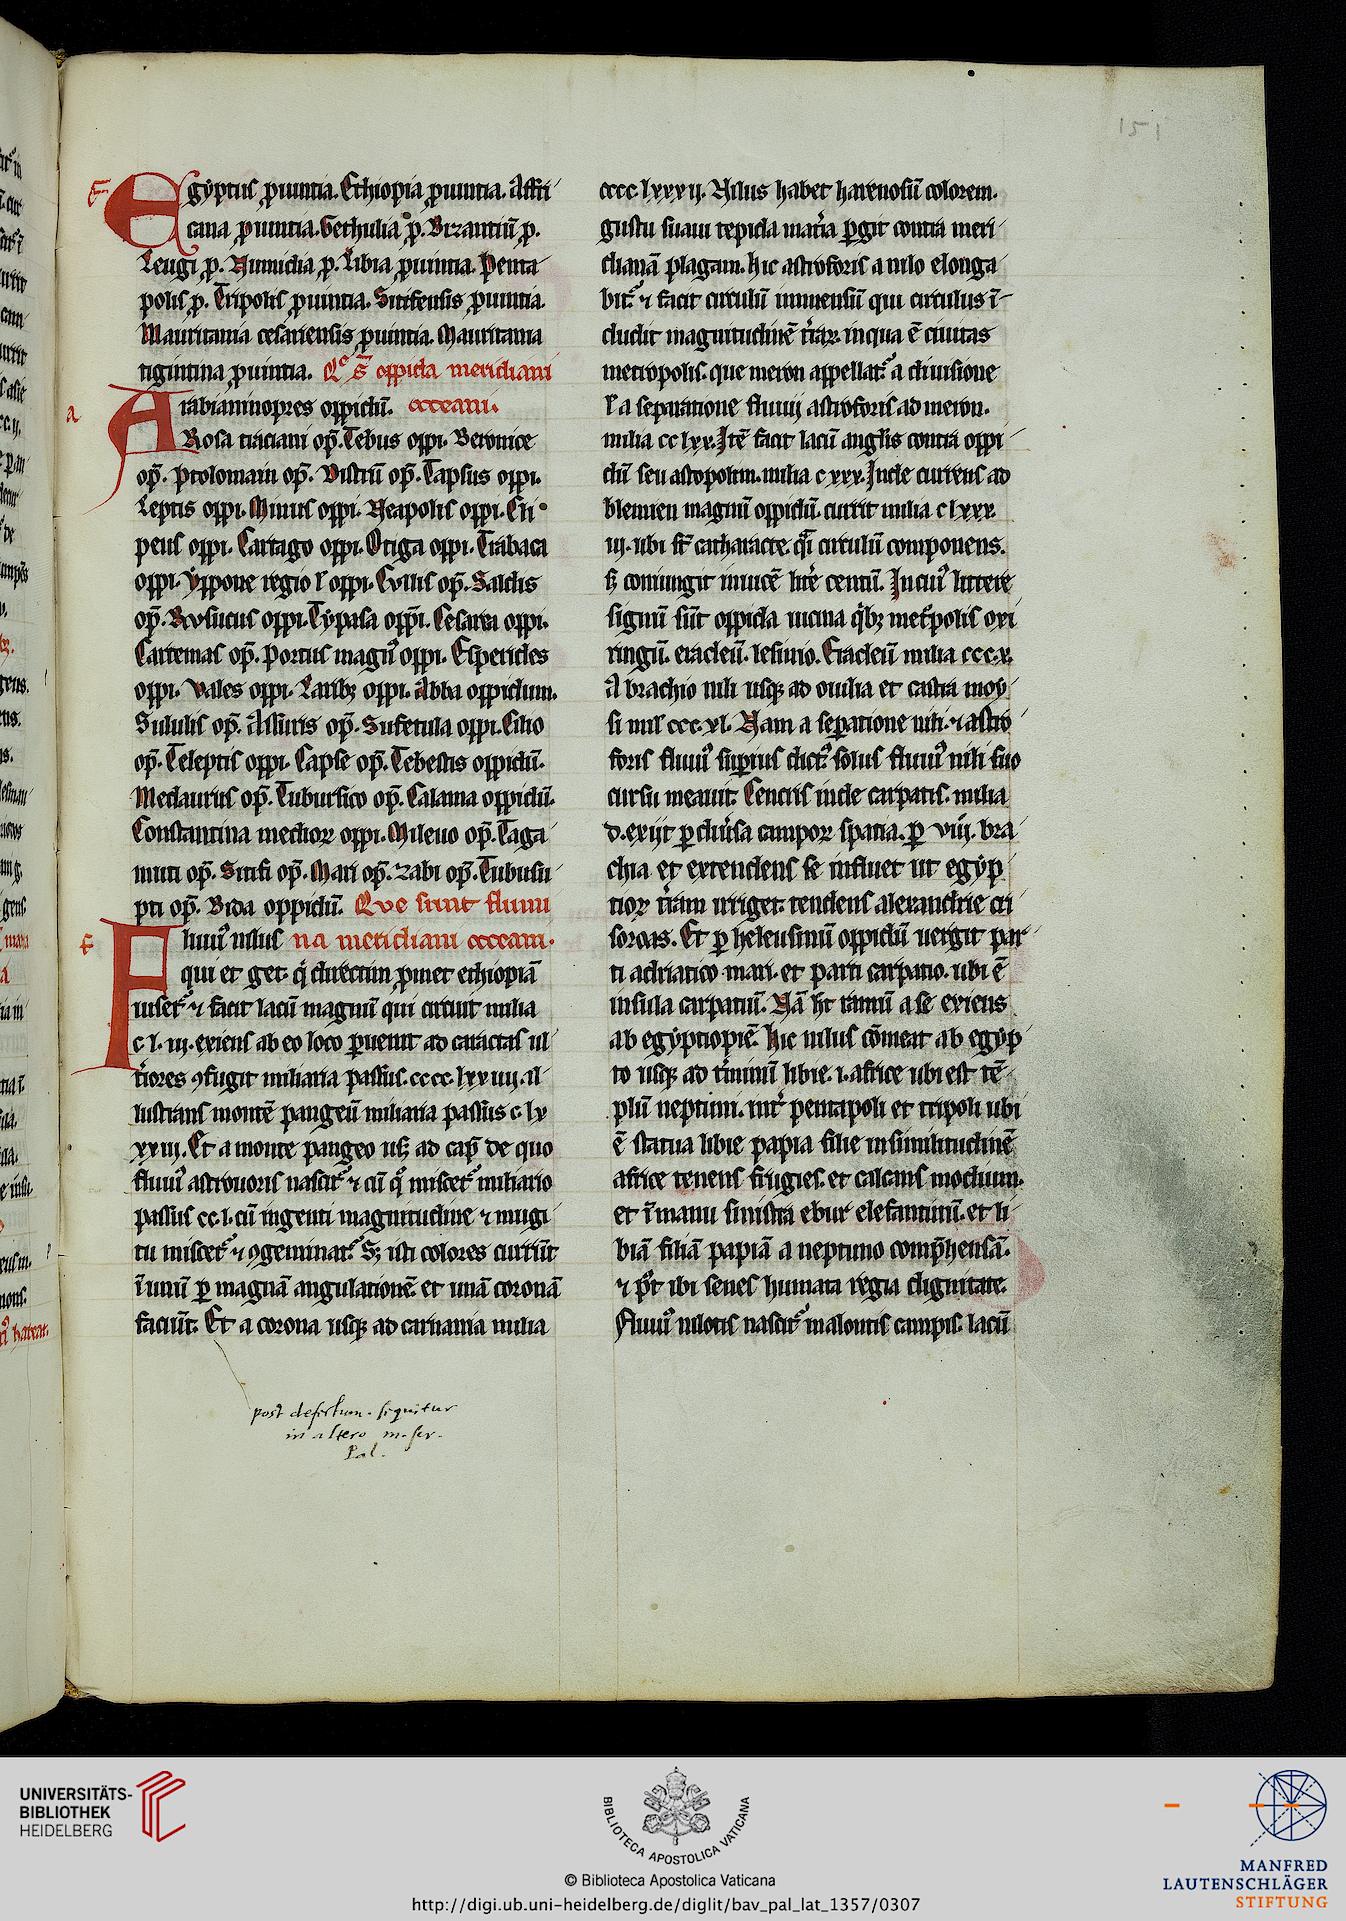 151
E
Egyptus ꝓuintia. Ethiopia ꝓuintia. Affri
cana ꝓuintia. Gethulia ꝓ. Bizantiū ꝓ.
Leugi ꝓ. Numidia ꝓ. Libia ꝓuintia. Penta
polis ꝓ. Tripolis ꝓuintia. Sitifensis ꝓuintia.
Mauritania cesariensis ꝓuintia. Mauritania
tigintina ꝓuintia. Qͤ s̄ oppida meridiani
a
Arabianinopres oppidū. occeani.
Rosa traciani op̄. Tebus oppi. Beronice
op̄. Ptolomain op̄. Distriū op̄. Tapsus oppi.
Leptis oppi. Minus oppi. Neapolis oppi. Cri
peus oppi. Cartago oppi. Otiga oppi. Trabaca
oppi. Yppone regio l' oppi. Cullis op̄. Saldis
op̄. Rusucus oppi. Typasa oppi. Cesarea oppi.
Cartemas op̄. Portus magn᷒ oppi. Esperides
oppi. Vales oppi. Laribꝫ oppi. Abba oppidum.
Sululis op̄. Assuris op̄. Sufetula oppi. Cilio
op̄. Teleptis oppi. Capse op̄. Tebestis oppidū.
Medaurus op̄. Tubursico op̄. Calama oppidū.
Constantina medioꝝ oppi. Mileuo op̄. Taga
muti op̄. Sitifi op̄. Mari op̄. Zabi op̄. Tubusu
pti op̄. Bida oppidū. Qve sunt flumi
f
Fluui᷒ nilus na meridiani occeani.
qui et geͬ. q̇ directim ꝓmet ethiopiā
uisetͬ ⁊ facit lacū magnū qui circuit milia
c l. iii. exiens ab eo loco ꝑuenit ad catactas ul
t̓iores ꝯfugit miliaria passuū. cccc. lxxiiii. il
lustrans montē pangeū miliaria passuū c lx
xxiii. Et a monte pangeo usꝫ ad cap̄ de quo
fluui᷒ astrouoris nascitͬ ⁊ cū q̊ miscetͬ miliario
passus cc. l. cū ingenti magnitudine ⁊ mugi
tu miscetͬ ⁊ ꝯgeminatͬ. Sꝫ isti colores currūt
ī unū ꝑ magnā angulationē. et unā coronā
faciūt. Et a corona usqꝫ ad carnania milia
post desertum. sequitur
in altero m. ser.
Pal.
cccc lxxxii. Nilus habet harenosū colorem.
gustu suaui tepida mat̓ia ꝑgit contra meri
dianā plagam. hic astroforis a nilo elonga
bitͬ ⁊ facit circulū immensū qui circulus ī
cludit magnitudinē t̓raꝝ. in qua ē ciuitas
metropolis. que meron appellatͬ a diuisione
l' a separatione fluuii astroforis ad meron.
milia cc lxx. Itē facit lacū anglis contra oppi
dū seu astopolim. milia c xxx. Inde currens ad
blemien magnū oppidū. currit milia c lxxx.
iii. ubi sͭ catharacte. q̄i circulū componens.
sꝫ coniungit inuicē lit̓e centū. In cui᷒ littere
signū sūt oppida uicina q̇bꝫ met̓polis oxi
ringū. eracleū. lesinio. Eracleū milia ccc x.
A brachio nili usqꝫ ad ouilia et castra moy
si mil' ccc. xl. Nam a seꝑatione nili. ⁊ astro
foris fluui᷒ suꝑius dict᷒ solus fluui᷒ nili suo
cursu meauit. Cencris inde carpatis. milia
d. exiit ꝑ diu̓sa campoꝝ spatia. ꝑ viii. bra
chia et extendens se influet ut egyp
tioꝝ t̓ram irriget. tendens alexandrie et
soroas. Et ꝑ heleusinū oppidū uergit par
ti adriatico mari. et parti carpatio. ubi ē
insula carpatiū. Nā ht̓ ramū a se exiens
ab egyptiopiē. hic nilus cōmeat ab egyp
to usqꝫ ad t̓minū libie. i. africe ubi est tē
plū neptuni. int̓ pentapoli et tripoli ubi
ē statua libie papia filie in similitudinē
africe tenens frugies. et calcans modium.
et ī manu sinistra ebur elefantinū. et li
biā filiā papiā a neptuno comp̄hensā.
⁊ p̊t ibi senes humata regia dignitate.
Fluui᷒ nilotis nascitͬ in alontis campis. lacū
UNIVERSITÄTS-
BIBLIOTHEK
HEIDELBERG
BIBLIOTECA APOSTOLICA VATICANA
© Biblioteca Apostolica Vaticana
http://digi.ub.uni-heidelberg.de/diglit/bav_pal_lat_1357/0307
MANFRED
LAUTENSCHLÄGER
STIFTUNG